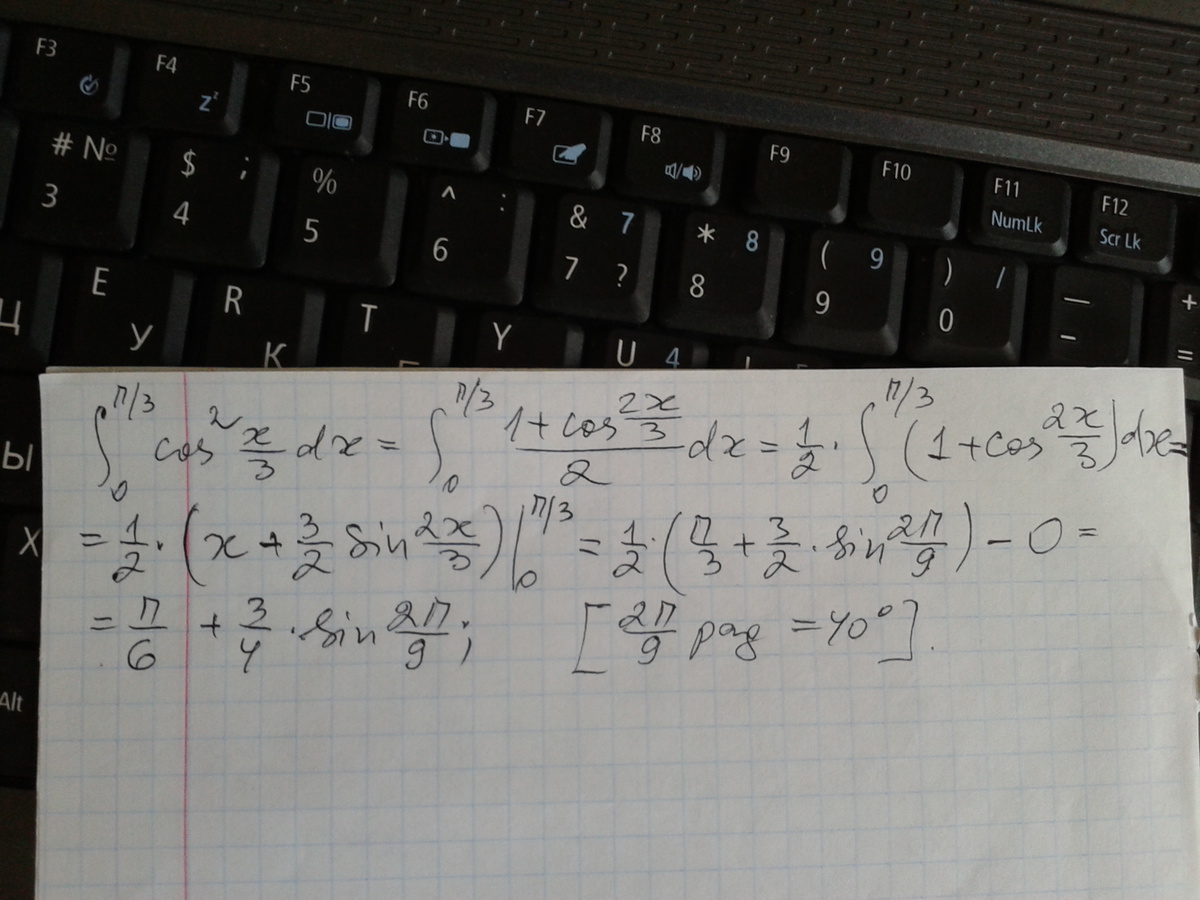 F3 F4 Zz F5 F6 F7 F8 F9 F10 F11 NumLk F12 Scr Lk
# № 3 $ ; 4 % 5 ^ : 6 & 7 7 ? * 8 8 ( 9 9 ) / 0 — - + =
Ц E У R К T Y U 4
Ы
Х
Alt
∫₀^{π/3} cos² x/3 dx = ∫₀^{π/3} (1 + cos 2x/3)/2 dx = 1/2 · ∫₀^{π/3} (1 + cos 2x/3) dx =
= 1/2 · (x + 3/2 sin 2x/3) |₀^{π/3} = 1/2 · (π/3 + 3/2 · sin 2π/9) - 0 =
= π/6 + 3/4 · sin 2π/9; [2π/9 рад = 40°].